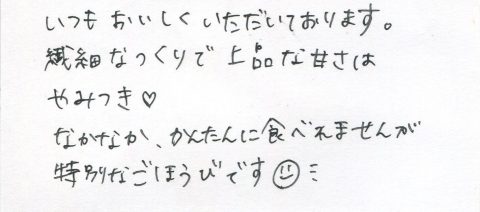 いつもおいしくいただいております。
繊細なつくりで上品な甘さは
やみつき♡
なかなか、かんたんに食べれませんが
特別なごほうびです☺